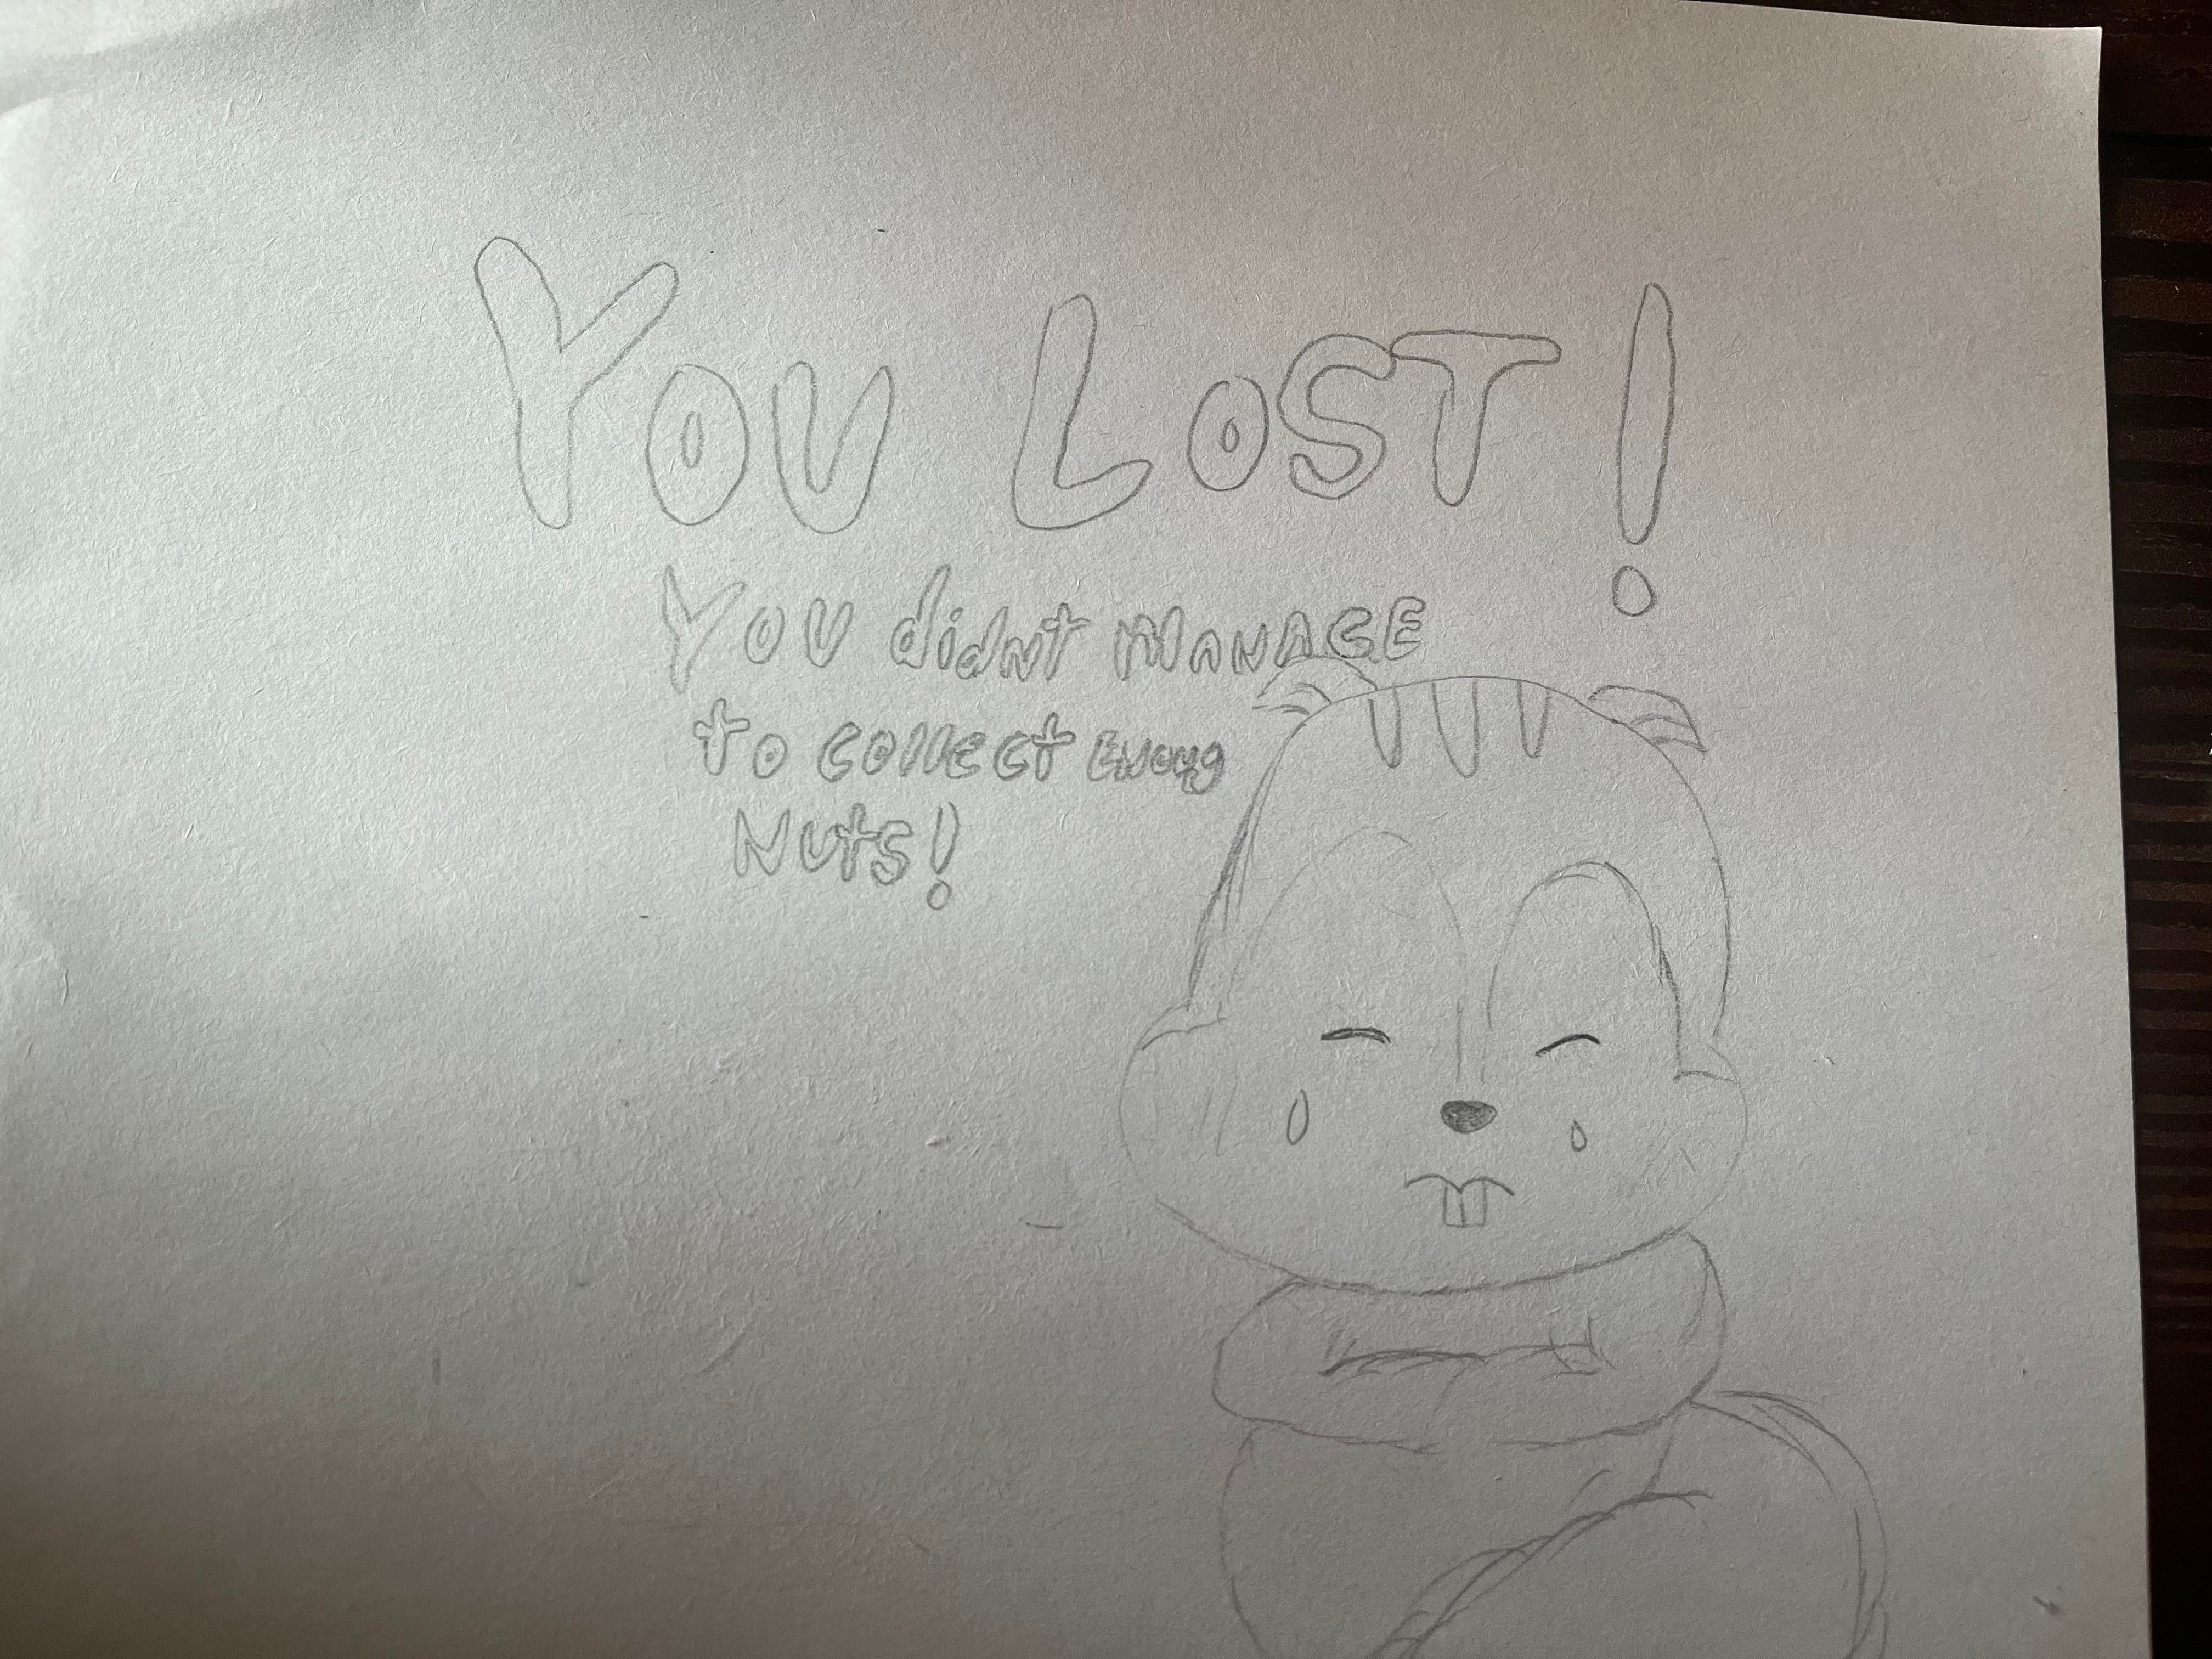 YOU LOST!
You didnt MANAGE
to collect Enoug
Nuts!